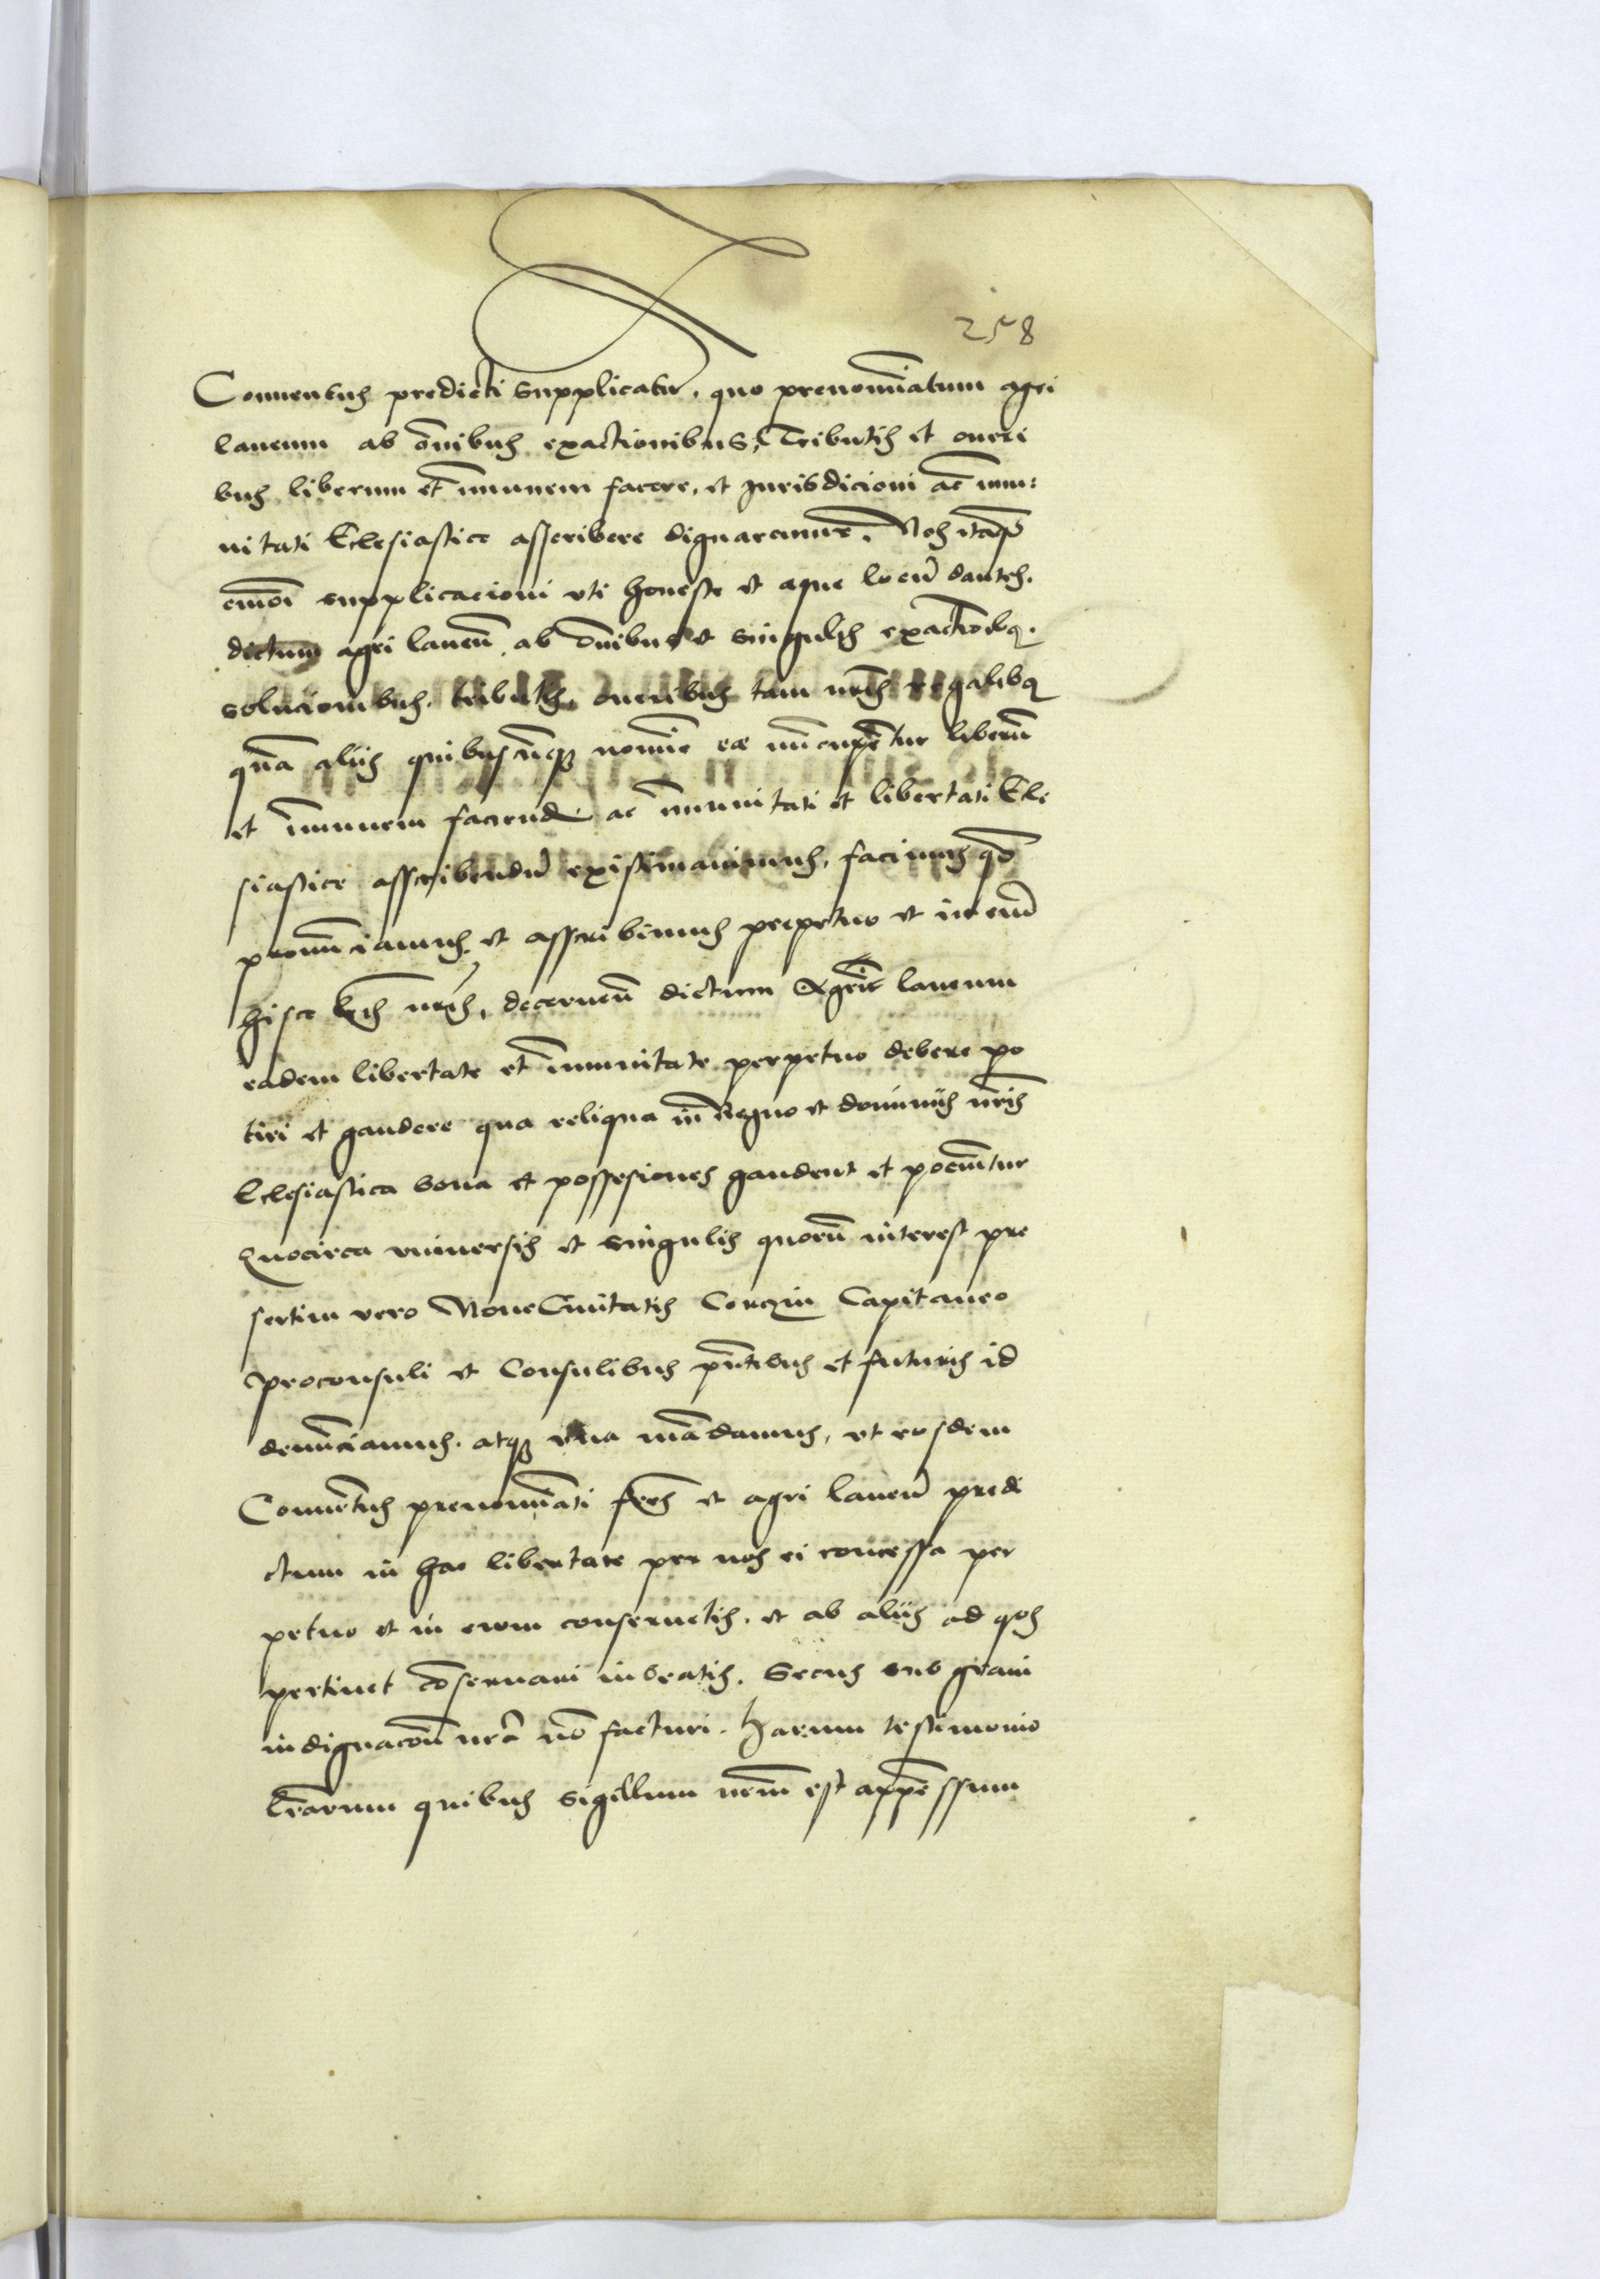 258
Conventus predicti supplicatur, quo prenominatum agri
laneum ab omnibus exactionibus, Tributis et oneri
bus liberum et immunem facere, et Jurisdicioni ac immu:
nitati Eclesiastice asscribere dignaremur. Nos itaque
supplicacioni uti honeste et eque locum dantes.
dictum agri laneum ab omnibus et singulis exactionibus.
solucionibus. tributis, oneribus tam nostris regalibus
quam aliis quibuscunque nomine ee nuncupentur liberum
et immunem faciendum ac immunitati et libertati Ecle
siastice asscribendum existimavimus, facimus
pronunciamus et asscribimus perpetuo et in evum
hisce literis nostris, decernentes dictum Agri laneum
eadem libertate et immunitate perpetuo debere po
tiri et gaudere qua reliqua in Regno et dominiis nostris
Eclesiastica bona et possesiones gaudent et pociuntur
Quocirca universis et singulis quorum interest pre
sertim vero Nove Civitatis Corczin Capitaneo
proconsuli et Consulibus presentibus et futuris id
denunciamus. atque una mandamus, ut eosdem
Conventus prenominati fratres et agri laneum predi
ctum in hac libertate per nos ei concessa per
petuo et in evum conservetis. et ab aliis ad quos
pertinet conservari iubeatis. Secus sub gravi
indignacione nostra non facturi. Harum testimonio
literarum quibus sigillum nostrum est appenssum